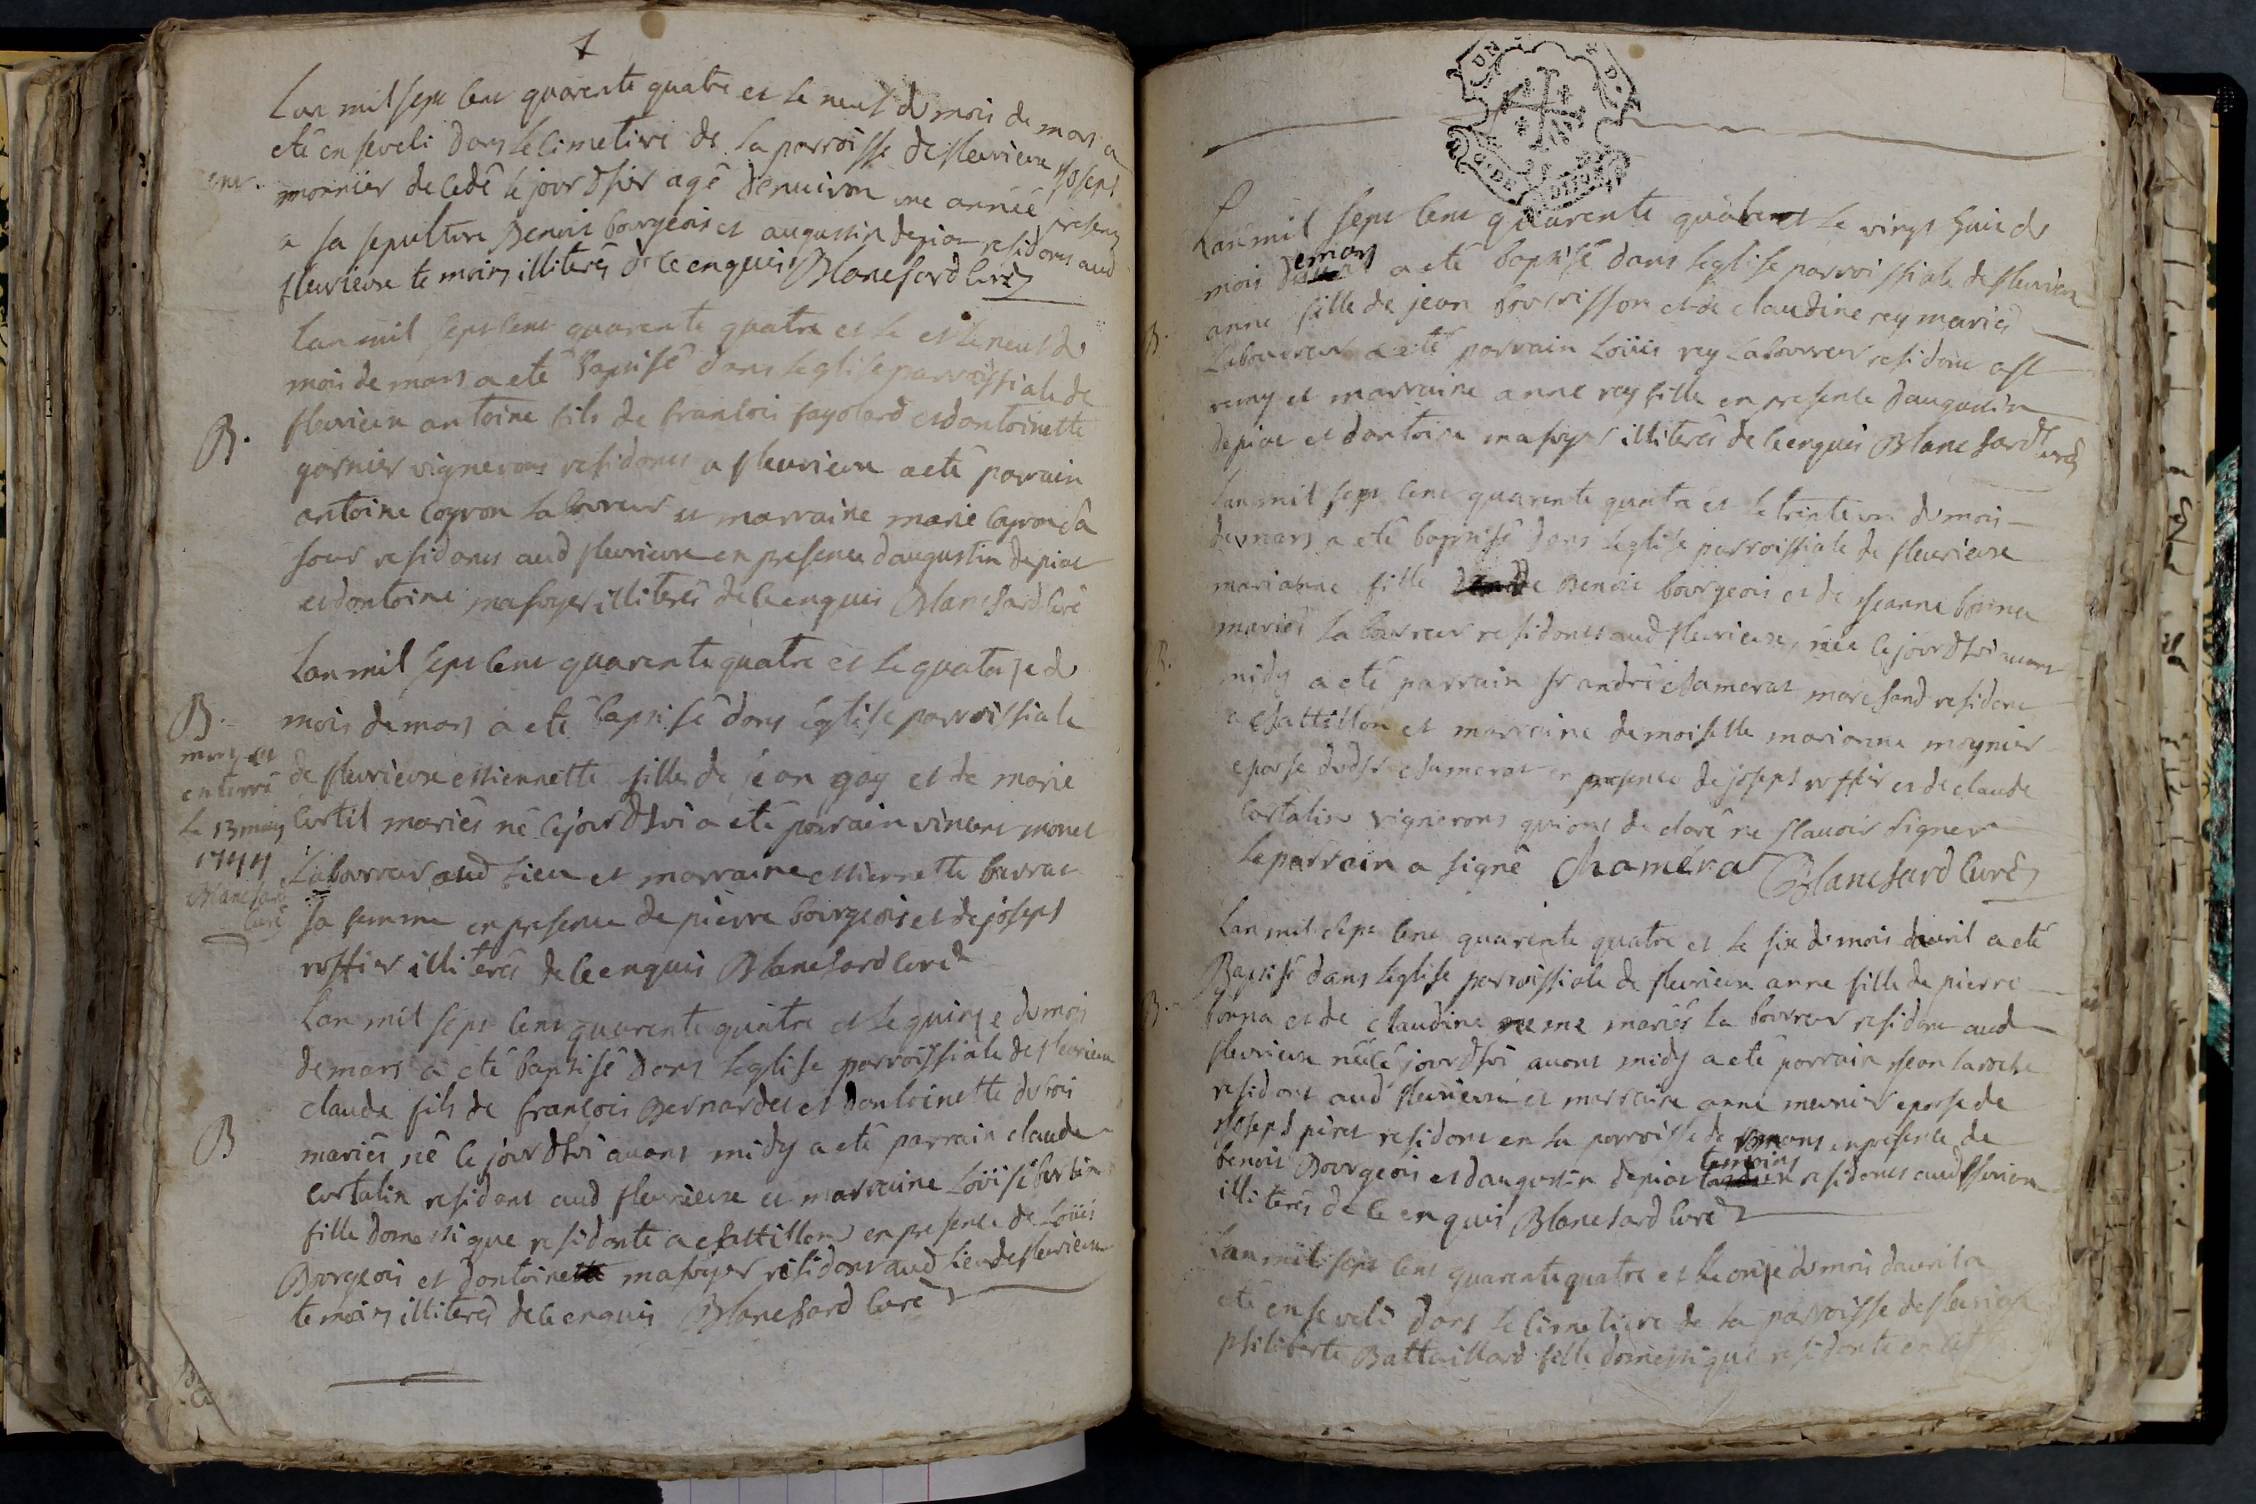 Lan mil sept cent quarente quatre et le neuf du mois de mars a
eté enseveli dans le cimetire de la parroisse de fleurieux Joseph
ent.
monnier decedé le jour dhier agé denuiron une année presens
a sa sepulture Benoit bourgeois et augustin depiat residans aud
fleurieux temoins illiterés de ce enquis Blanchard curé
Lan mil sept cent quarente quatre et le et le neuf du
mois de mars a eté baptisé dans leglise parroissiale de
fleurieux antoine fils de francois fayolard et dantoinette
B.
garnier vignerons residants a fleurieux a eté parrain
antoine coyron laboureur et marraine marie coyron sa
sour residants aud fleurieux en presence daugustin depiat
et dantoine masoyer illiterés de ce enquis Blanchard curé
Lan mil sept cent quarente quatre et le quatorze du
B.
mois de mars a eté baptisé dans leglise parroissiale
de fleurieux estiennette fille de jean gay et de marie
curtil mariés né ce jourdhui a eté parrain vincent monet
laboureur aud lieu et marraine estiennette burrat
sa femme en presence de pierre bourgeois et de joseph
roffier illiterés de ce enquis Blanchard curé
mort et
enterré
le 13 may
1744
Blanchard
curé
Lan mil sept cent quarente quatre et le quinze du mois
de mars a eté baptisé dans leglise parroissiale de fleurieux
claude fils de françois Bernardet et dantoinette dufoi
B
mariés né ce jourdhui auant midy a eté parrain claude
curtalin residant aud fleurieux et marraine Loüise
fille domestique residante a chattillon en presence de Loüis
Bourgeois et dantoine masoyer residans aud lieu de fleurieux
temoins illiterés de ce enquis Blanchard curé
Lan mil sept cent quarente quatre et le vingt huit du
mois de mars a eté baptisé dans leglise parroissiale de fleurieux
anne fille de jean bourrisson et de claudine rey mariés
B.
Laboureur a eté parrain Loüis rey Laboureur residant a st
remy et marraine anne rey fille en presence daugustin
depiat et dantoine masoyer illiterés de ce enquis Blanchard curé
Lan mil sept cent quarente quatre et le trente un du mois
de mars a eté baptisé dans leglise parroissiale de fleurieux
marianne fille de Benoit bourgeois et de Jeanne bonna
mariés laboureur residants aud fleurieux, née ce jourdhui auant
B.
midy a eté parrain sr andré chamerat marchand residant
a chattillon et marraine demoiselle marianne moynier
epouse dudsr chamerat en presence de joseph roffier et de claude
curtalin vignerons qui ont declaré ne sçauoir signer
le parrain a signé Chaméra Blanchard curé
Lan mil sept cent quarente quatre et le six du mois dauril a eté
Baptisé dans leglise parroissiale de fleurieux anne fille de pierre
B.
bonna et de claudine mariés laboureur residant aud
fleurieux née ce jourdhui auant midy a eté parrain Jean laroche
residant aud fleurieux et marraine anne meunier epouse de
Joseph piret residant en la parroisse de romans en presence de
benoit Bourgeois et daugustin depiat temoins residants aud fleurieux
illiterés de ce enquis Blanchard curé
Lan mil sept cent quarente quatre et le onze du mois dauril a
eté enseveli dans le cimetiere de la parroisse de fleurieux
philiberte Battaillard fille domestique residante en cet